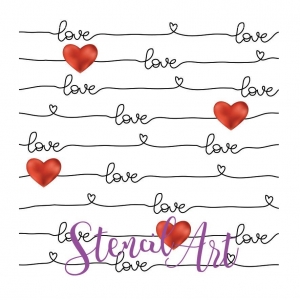 love love
love
love love
love
love love
love
love love
love
Stencil Art
love